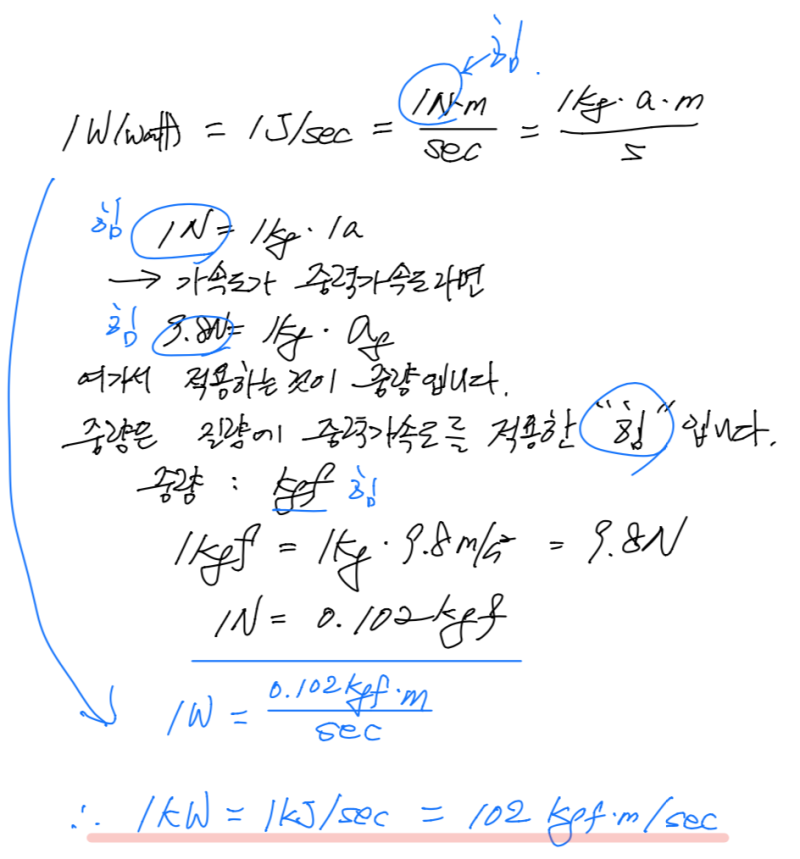 힘
1W(watt) = 1J/sec = 1N·m/sec = 1kg·a·m/s
힘 1N = 1kg·1a
→ 가속도가 중력가속도라면
힘 9.8N = 1kg·ag
여기서 적용하는것이 중량입니다.
중량은 질량에 중력가속도를 적용한 "힘"입니다.
중량 : kgf 힘
1kgf = 1kg·9.8m/s² = 9.8N
1N = 0.102kgf
1W = 0.102kgf·m/sec
∴ 1kW = 1kJ/sec = 102 kgf·m/sec